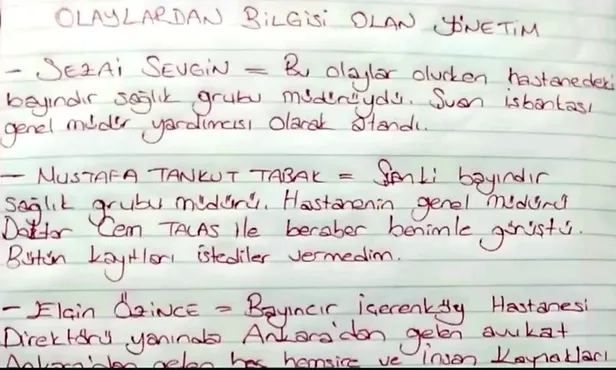 OLAYLARDAN BİLGİSİ OLAN YÖNETİM
- SEZAİ SEVGİN = Bu olaylar olurken hastanedeki
bayındır sağlık grubu müdürüydü. Şuan işbankası
genel müdür yardımcısı olarak atandı.
- MUSTAFA TANKUT TABAK = Şimki bayındır
sağlık grubu müdürü. Hastanenin genel müdürü
Doktor Cem TALAS ile beraber benimle görüştü.
Bütün kayıtları istediler vermedim.
- Elçin ÖZİNCE = Bayıncır içerenköy Hastanesi
Direktörü yanında Ankara'dan gelen avukat
Ankara'dan gelen baş hemşire ve insan kaynakları